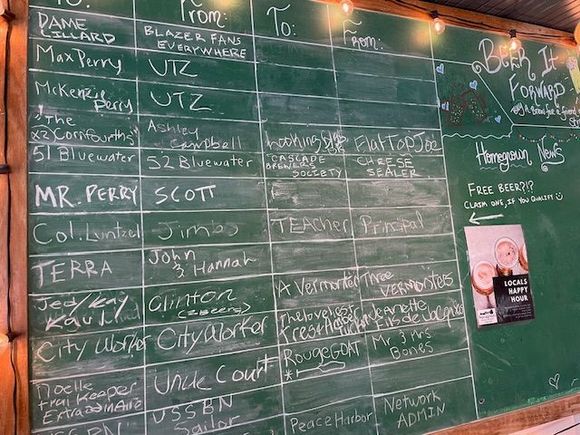 To: From: To: From:
DAME LILLARD BLAZER FANS EVERYWHERE
Max Perry UTZ
McKenzie Perry UTZ
"The x2 Cornfourths" Ashley Campbell Looking Flat Top Joe
51 Bluewater 52 Bluewater CASCADE BREWERS SOCIETY CHEESE SEALER
MR. PERRY SCOTT
Col. Luntzel Jimbo TEACHER Principal
TERRA John & Hannah
Jed/Kay Clinton (2 BEERS) A Vermonter Three VERMONTERS
City Worker City Worker The lovelies Jeanette
Noelle trail keeper Extraordinaire Uncle Court ROUGE GOAT Mr. & Mrs Bones
USSBN USSBN Sailor Peace Harbor Network ADMIN
BEER It Forward
a Beer for a friend
Homegrown News
FREE BEER?!?
CLAIM ONE, IF YOU QUALIFY
LOCALS
HAPPY
HOUR